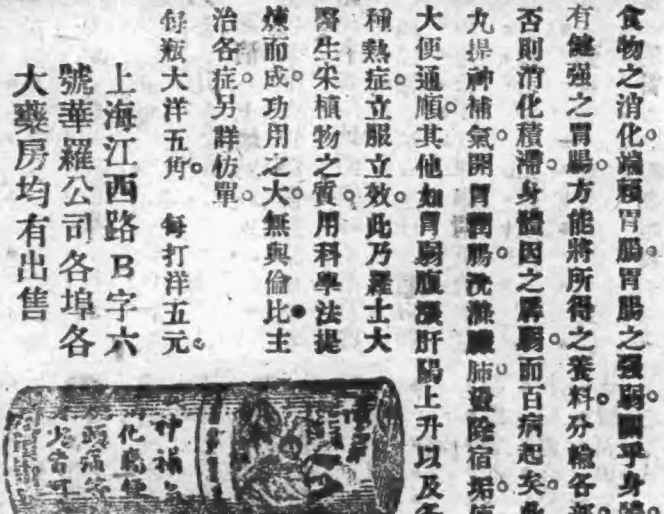 食物之消化端賴胃腸。胃腸之强弱關乎身體。
有健强之胃腸。方能將所得之養料。分輸各部。
否則消化積滯。身體因之孱弱。而百病起矣。此
丸提神補氣。開胃潤腸。洗滌臟肺。盪除宿垢。使
大便通順。其他如胃腸腹漲肝陽上升以及各
種熱症。立服立效。此乃羅士大
醫生采植物之質。用科學法提
煉而成。功用之大。無與倫比。主
治各症。另群仿單。
每瓶大洋五角。每打洋五元。
上海江西路B字六
號華羅公司各埠各
大藥房均有出售